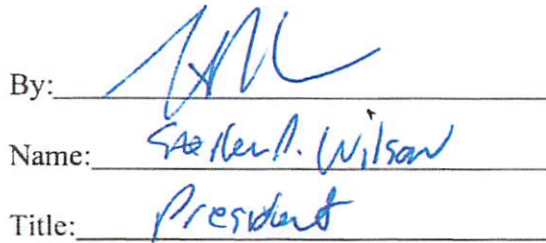 By:
Name: Stephen P. Wilson
Title: President